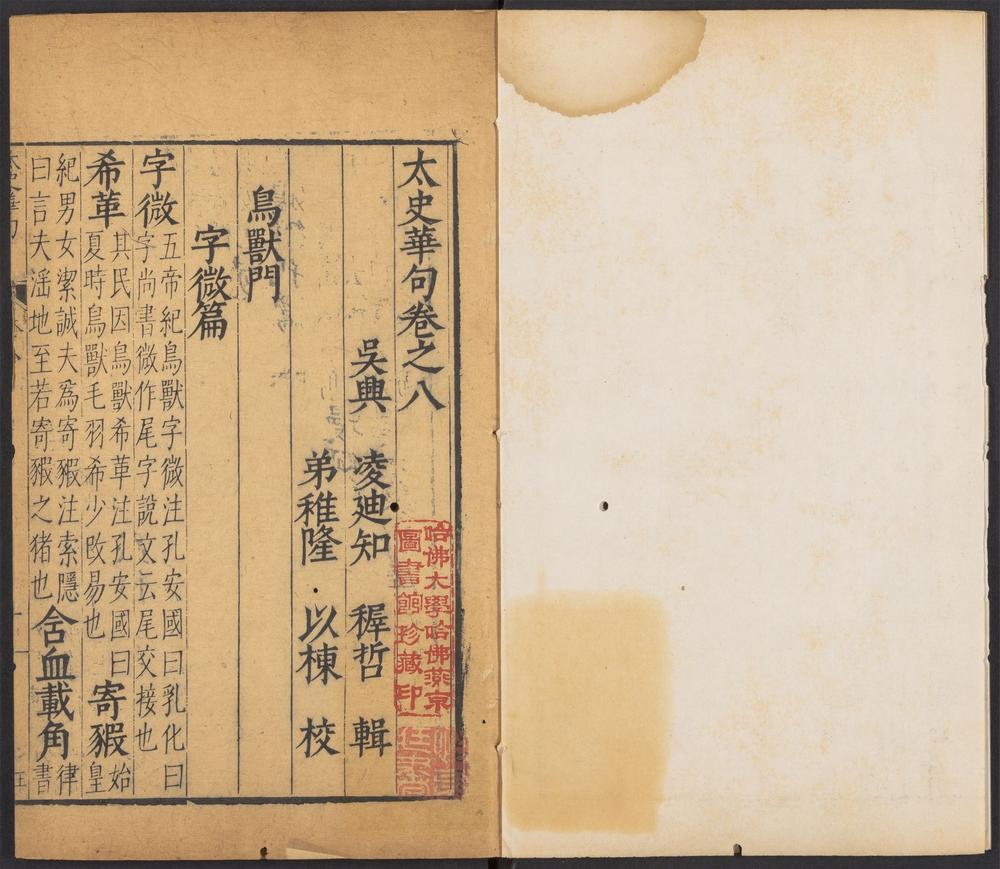 太史華句卷之八
吳興 凌迪知 稺哲 輯
弟稚隆 以棟 校
鳥獸門
字微篇
字微 五帝紀鳥獸字微注孔安國曰乳化曰
字尚書微作尾字說文云尾交接也
希革 其民因鳥獸希革注孔安國曰
夏時鳥獸毛羽希少改易也
寄豭 始
皇
紀男女潔誠夫爲寄豭注索隱
曰言夫淫他室若寄豭之猪也
含血載角 律
書
哈佛大學哈佛燕京
圖書館珍藏印